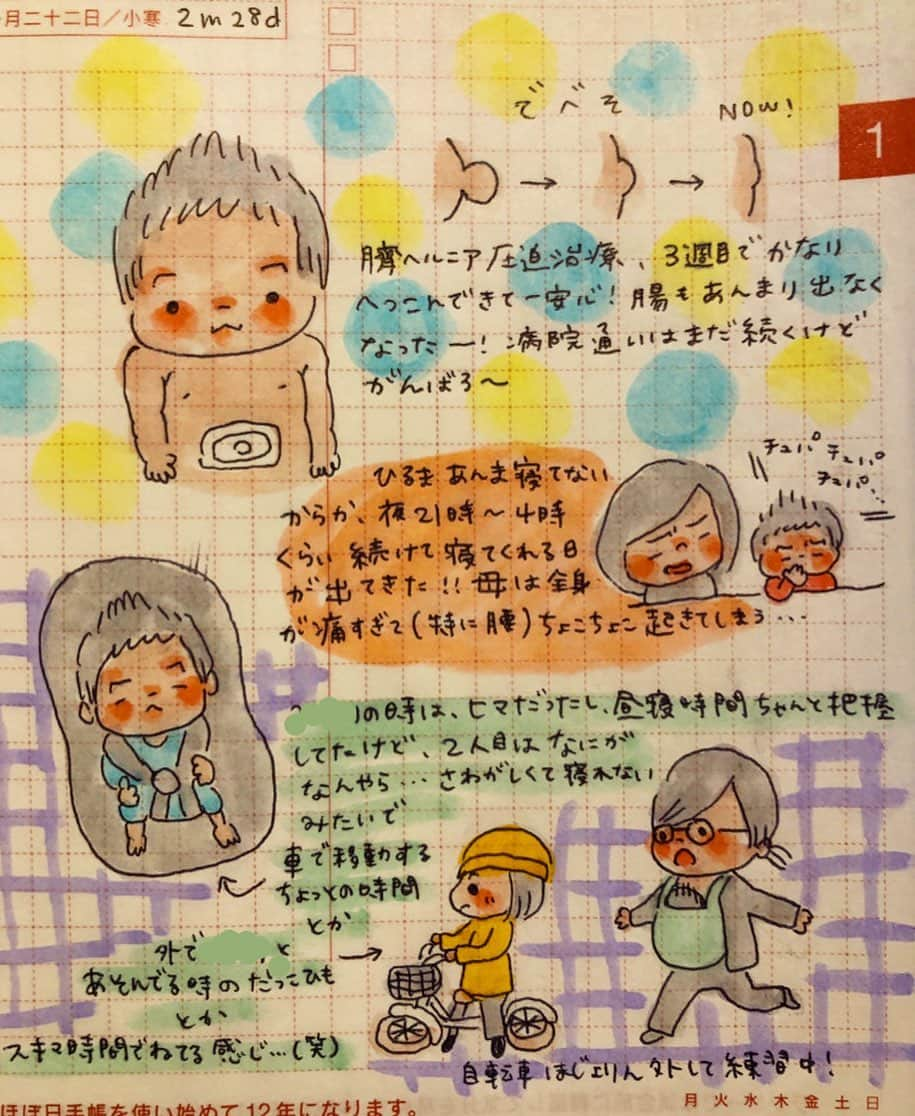 月二十二日/小寒 2m28d
1
でべそ NOW!
臍ヘルニア圧迫治療、、3週目でかなり
へっこんできて一安心!腸もあんまり出なく
なったー!病院通いはまだ続くけど
がんばろ〜
ひるまあんま寝てない
からか、夜21時〜4時
くらい続けて寝てくれる日
が出てきた!!母は全身
が痛すぎて(特に腰)ちょこちょこ起きてしまう...
チュパ チュパ
チュパ...
の時は、ヒマだったし、昼寝時間ちゃんと把握
してたけど、2人目はなにが
なんやら...さわがしくて寝れない
みたいで
車で移動する
ちょっとの時間
とか
外で と
あそんでる時のだっこひも
とか
スキマ時間でねてる感じ...(笑)
自転車ほじょりん外して練習中!
ほぼ日手帳を使い始めて12年になります。
月火水木金土日